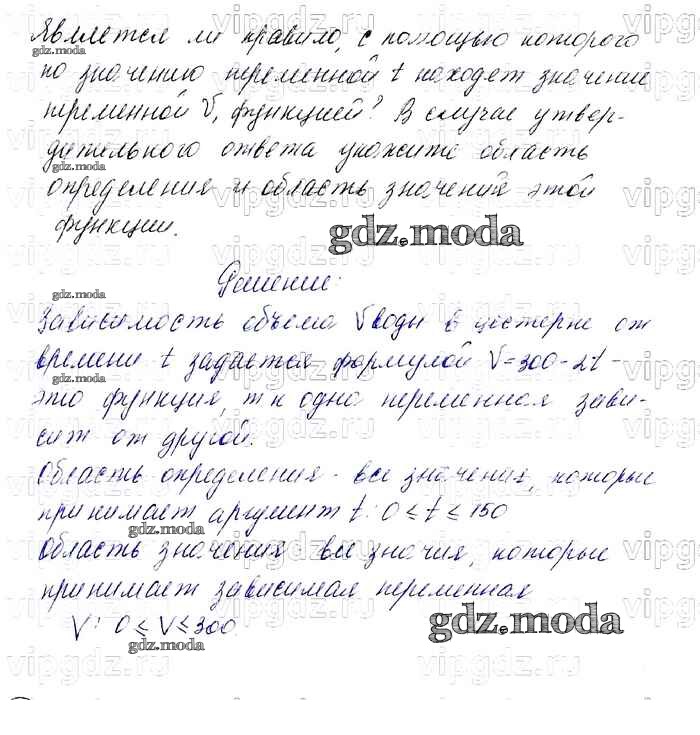 Является ли правило, с помощью которого
по значению переменной t находят значение
переменной V, функцией? В случае утвер-
дительного ответа укажите область
определения и область значений этой
функции.
gdz.moda
Решение:
Зависимость объема V воды в цистерне от
времени t задается формулой V=300-2t -
это функция, т к одна переменная зави-
сит от другой.
Область определения - все значения, которые
принимает аргумент t: 0 ≤ t ≤ 150
Область значения все значия, которые
принимает зависимая переменная
V: 0 ≤ V ≤ 300
gdz.moda